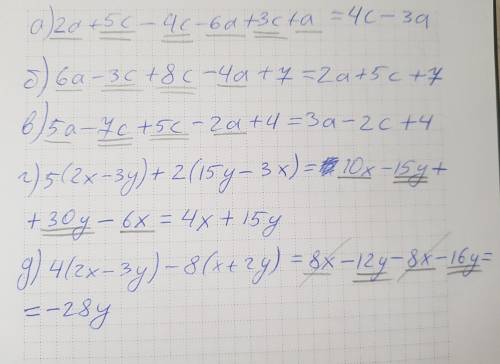 а) 2a + 5c - 4c - 6a + 3c + a = 4c - 3a
б) 6a - 3c + 8c - 4a + 7 = 2a + 5c + 7
в) 5a - 7c + 5c - 2a + 4 = 3a - 2c + 4
г) 5(2x - 3y) + 2(15y - 3x) = 10x - 15y +
+ 30y - 6x = 4x + 15y
д) 4(2x - 3y) - 8(x + 2y) = 8x - 12y - 8x - 16y =
= -28y